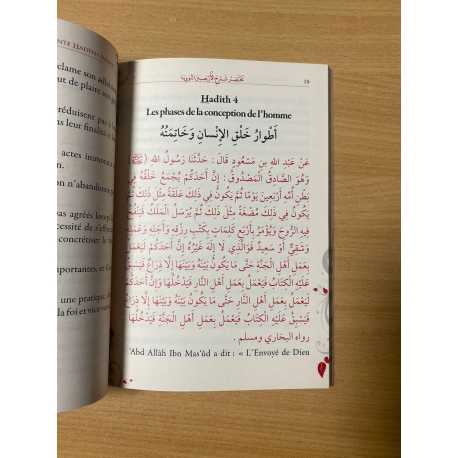 clame son
t de plaire
réduisent
ns leur finalité
actes
n'abandonne
pas agréés
cessité de s'eff
concrétiser
mportantes, et
une pratique,
la foi et vice
مختصر شرح الأربعين النووية
Hadith 4
Les phases de la conception de l'homme
أَطْوَارُ خَلْقِ الإِنْسَانِ وَخَاتِمَتُهُ
عَنْ عَبْدِ اللهِ بنِ مَسْعُودٍ قَالَ : حَدَّثَنَا رَسُولُ الله (ﷺ)
وَهُوَ الصَّادِقُ المَصْدُوقُ : إِنَّ أَحَدَكُمْ يُجْمَعُ خَلْقُهُ فِي
بَطْنِ أُمِّهِ أَرْبَعِينَ يَوْمًا ثُمَّ يَكُونُ فِي ذَلِكَ عَلَقَةً مِثْلَ ذَلِكَ ثُمَّ
يَكُونُ فِي ذَلِكَ مُضْغَةً مِثْلَ ذَلِكَ ثُمَّ يُرْسَلُ المَلَكُ فَيَنْفُخُ
فِيهِ الرُّوحَ وَيُؤْمَرُ بِأَرْبَعِ كَلِمَاتٍ بِكَتْبِ رِزْقِهِ وَأَجَلِهِ وَعَمَلِهِ
وَشَقِيٌّ أَوْ سَعِيدٌ فَوَالَّذِي لَا إِلَهَ غَيْرُهُ إِنَّ أَحَدَكُمْ لَيَعْمَلُ
بِعَمَلِ أَهْلِ الْجَنَّةِ حَتَّى مَا يَكُونُ بَيْنَهُ وَبَيْنَهَا إِلَّا ذِرَاعٌ فَيَسْبِقُ
عَلَيْهِ الْكِتَابُ فَيَعْمَلُ بِعَمَلِ أَهْلِ النَّارِ فَيَدْخُلُهَا وَإِنَّ أَحَدَكُمْ
لَيَعْمَلُ بِعَمَلِ أَهْلِ النَّارِ حَتَّى مَا يَكُونُ بَيْنَهُ وَبَيْنَهَا إِلَّا ذِرَاعٌ
فَيَسْبِقُ عَلَيْهِ الْكِتَابُ فَيَعْمَلُ بِعَمَلِ أَهْلِ الجَنَّةِ فَيَدْخُلُهَا
رواه البخاري ومسلم .
'Abd Allâh Ibn Mas'ûd a dit : « L'Envoyé de Dieu